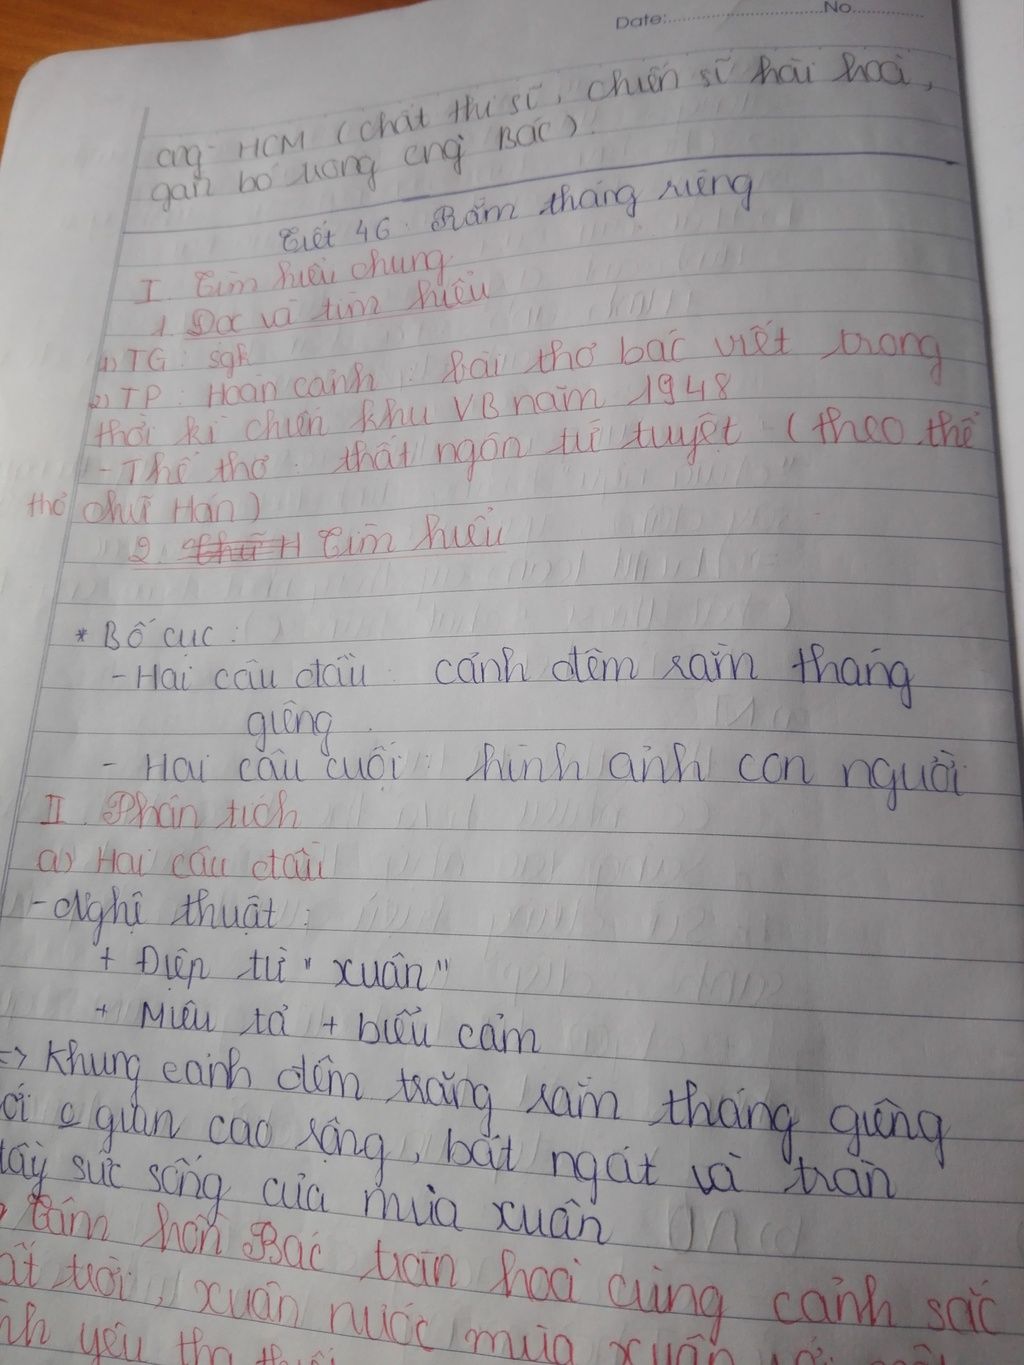 Date: No
cng HCM (chất thi sĩ, chiến sĩ hài hoà,
gắn bó trong cng Bác).
Tiết 46: Rằm tháng riêng
I. Tìm hiểu chung
1. Đọc và tìm hiểu
1) TG: sgk
2) TP: Hoàn cảnh: bài thơ bác viết trong
thời kì chiến khu VB năm 1948
- Thể thơ: thất ngôn tứ tuyệt (theo thể
thơ chữ Hán)
2. Tìm hiểu
* Bố cục:
- Hai câu đầu: cảnh đêm rằm tháng
giêng.
- Hai câu cuối: hình ảnh con người
II. Phân tích
a) Hai câu đầu
- Nghệ thuật:
+ Điệp từ "xuân"
+ Miêu tả + biểu cảm
=> Khung cảnh đêm trăng rằm tháng giêng
gian cao rộng, bát ngát và tràn
đầy sức sống của mùa xuân
Tâm hồn Bác tràn hoà cùng cảnh sắc
trời, xuân nước, mùa xuân
yêu tha thiết